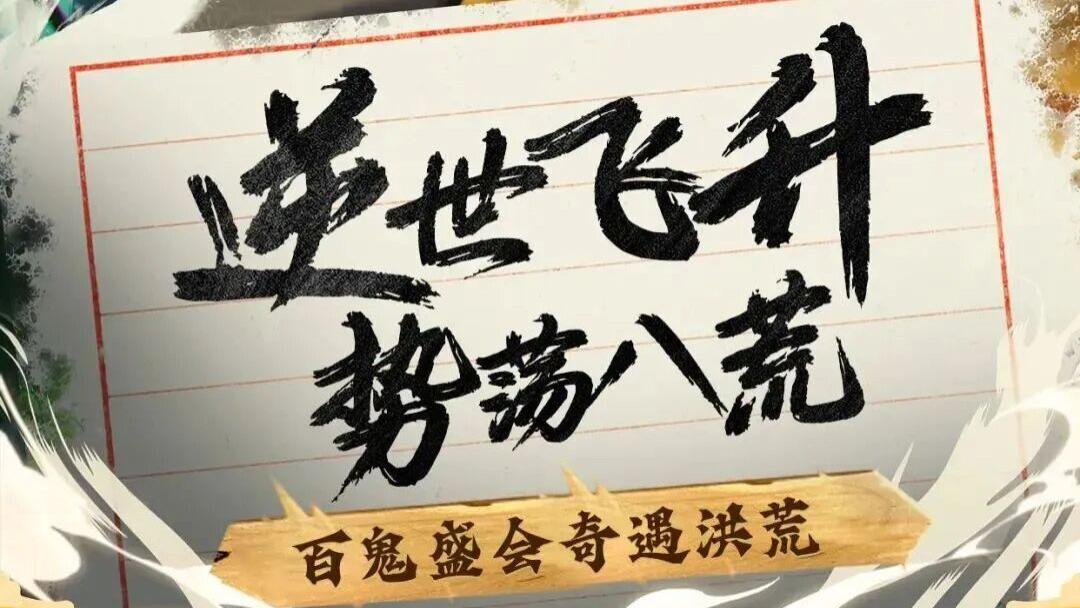 逆世飞升
势荡八荒
百鬼盛会奇遇洪荒